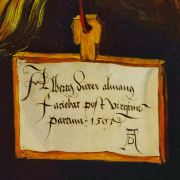 Albertus Dürer almanus
faciebat post Virginis
partum · 1507
AD